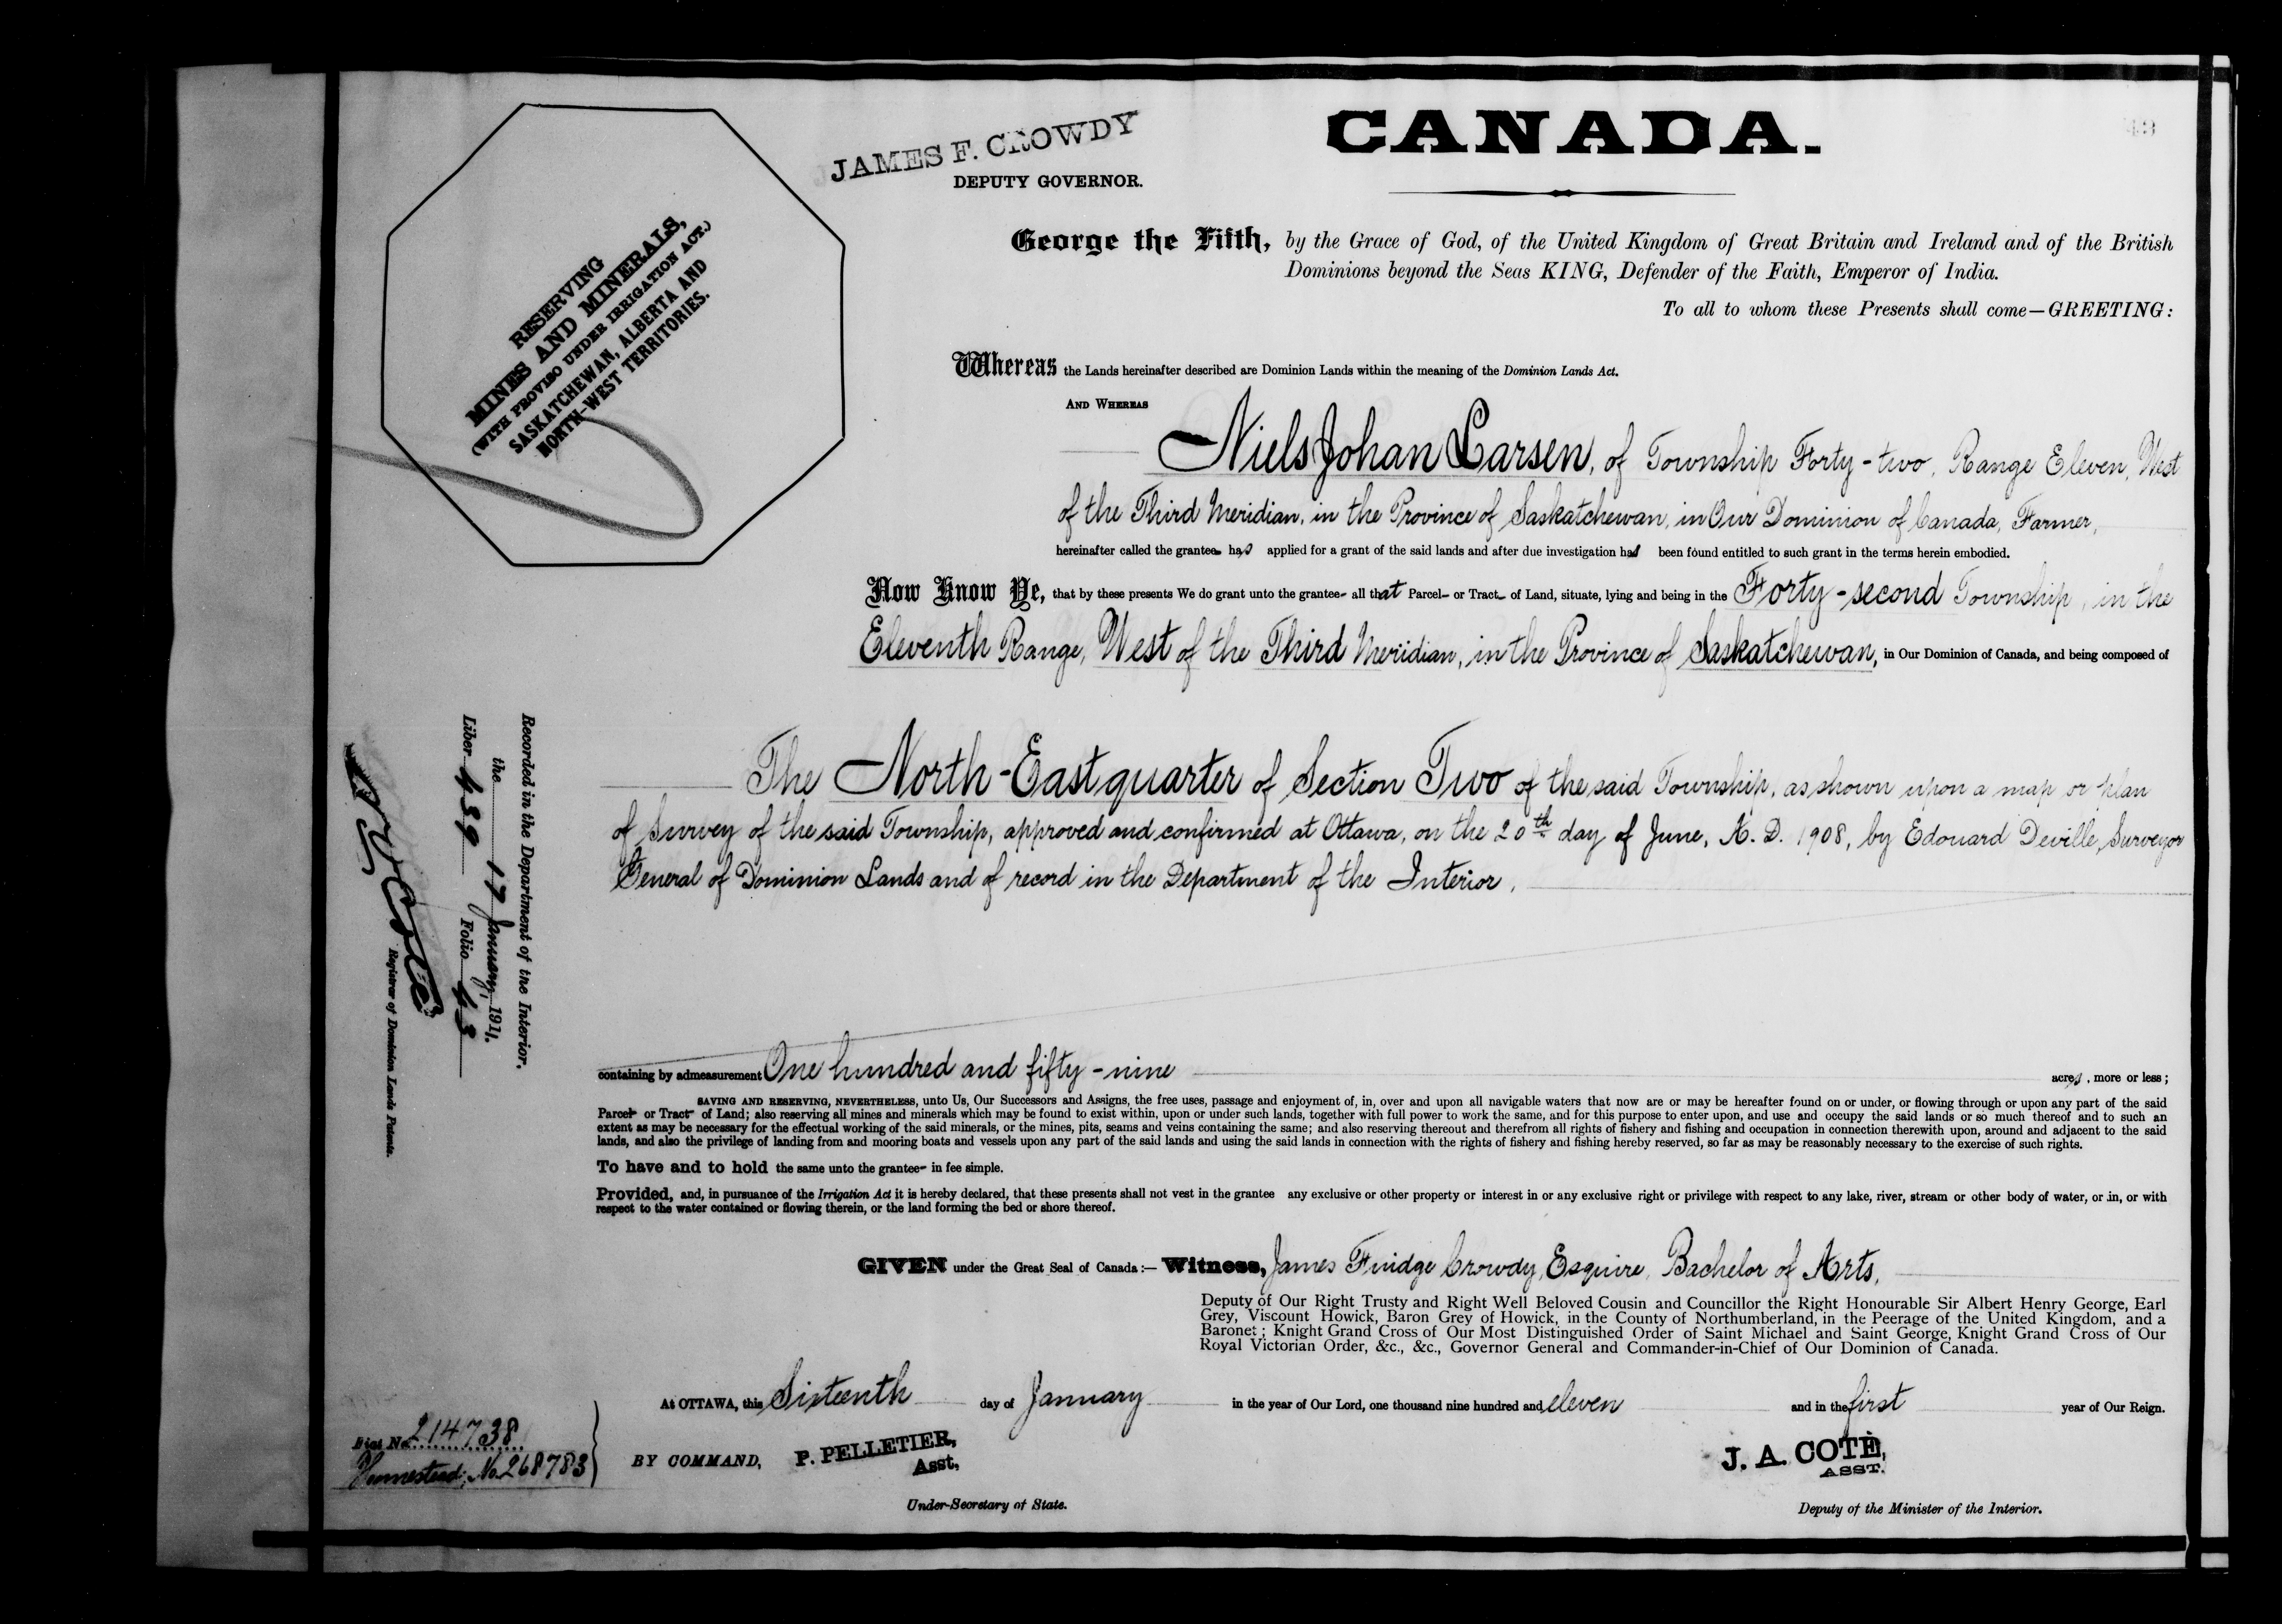 CANADA.
43
JAMES F. CROWDY
DEPUTY GOVERNOR.
RESERVING
MINES AND MINERALS,
(WITH PROVISO UNDER IRRIGATION ACT.)
SASKATCHEWAN, ALBERTA AND
NORTH-WEST TERRITORIES.
George the Fifth, by the Grace of God, of the United Kingdom of Great Britain and Ireland and of the British
Dominions beyond the Seas KING, Defender of the Faith, Emperor of India.
To all to whom these Presents shall come—GREETING:
Whereas the Lands hereinafter described are Dominion Lands within the meaning of the Dominion Lands Act.
AND WHEREAS
Niels Johan Larsen, of Township Forty-two, Range Eleven, West
of the Third Meridian, in the Province of Saskatchewan, in Our Dominion of Canada, Farmer,
hereinafter called the grantee has applied for a grant of the said lands and after due investigation has been found entitled to such grant in the terms herein embodied.
Now Know Ye, that by these presents We do grant unto the grantee all that Parcel or Tract of Land, situate, lying and being in the Forty-second Township, in the
Eleventh Range, West of the Third Meridian, in the Province of Saskatchewan, in Our Dominion of Canada, and being composed of
The North-East quarter of Section Two of the said Township, as shown upon a map or plan
of Survey of the said Township, approved and confirmed at Ottawa, on the 20th day of June, A. D. 1908, by Edouard Deville, Surveyor
General of Dominion Lands and of record in the Department of the Interior,
containing by admeasurement One hundred and fifty-nine acres, more or less;
SAVING AND RESERVING, NEVERTHELESS, unto Us, Our Successors and Assigns, the free uses, passage and enjoyment of, in, over and upon all navigable waters that now are or may be hereafter found on or under, or flowing through or upon any part of the said
Parcel or Tract of Land; also reserving all mines and minerals which may be found to exist within, upon or under such lands, together with full power to work the same, and for this purpose to enter upon, and use and occupy the said lands or so much thereof and to such an
extent as may be necessary for the effectual working of the said minerals, or the mines, pits, seams and veins containing the same; and also reserving thereout and therefrom all rights of fishery and fishing and occupation in connection therewith upon, around and adjacent to the said
lands, and also the privilege of landing from and mooring boats and vessels upon any part of the said lands and using the said lands in connection with the rights of fishery and fishing hereby reserved, so far as may be reasonably necessary to the exercise of such rights.
To have and to hold the same unto the grantee in fee simple.
Provided, and, in pursuance of the Irrigation Act it is hereby declared, that these presents shall not vest in the grantee any exclusive or other property or interest in or any exclusive right or privilege with respect to any lake, river, stream or other body of water, or in, or with
respect to the water contained or flowing therein, or the land forming the bed or shore thereof.
GIVEN under the Great Seal of Canada:— Witness, James Fuidge Crowdy, Esquire, Bachelor of Arts,
Deputy of Our Right Trusty and Right Well Beloved Cousin and Councillor the Right Honourable Sir Albert Henry George, Earl
Grey, Viscount Howick, Baron Grey of Howick, in the County of Northumberland, in the Peerage of the United Kingdom, and a
Baronet; Knight Grand Cross of Our Most Distinguished Order of Saint Michael and Saint George, Knight Grand Cross of Our
Royal Victorian Order, &c., &c., Governor General and Commander-in-Chief of Our Dominion of Canada.
At OTTAWA, this Sixteenth day of January in the year of Our Lord, one thousand nine hundred and eleven and in the first year of Our Reign.
BY COMMAND, P. PELLETIER,
Asst,
Under-Secretary of State.
J. A. COTÉ,
ASST.
Deputy of the Minister of the Interior.
Fiat No. 214738
Homestead; No. 268783
Recorded in the Department of the Interior.
the 17 January, 1911.
Liber 439 Folio 43
Coté
Registrar of Dominion Lands Patents.